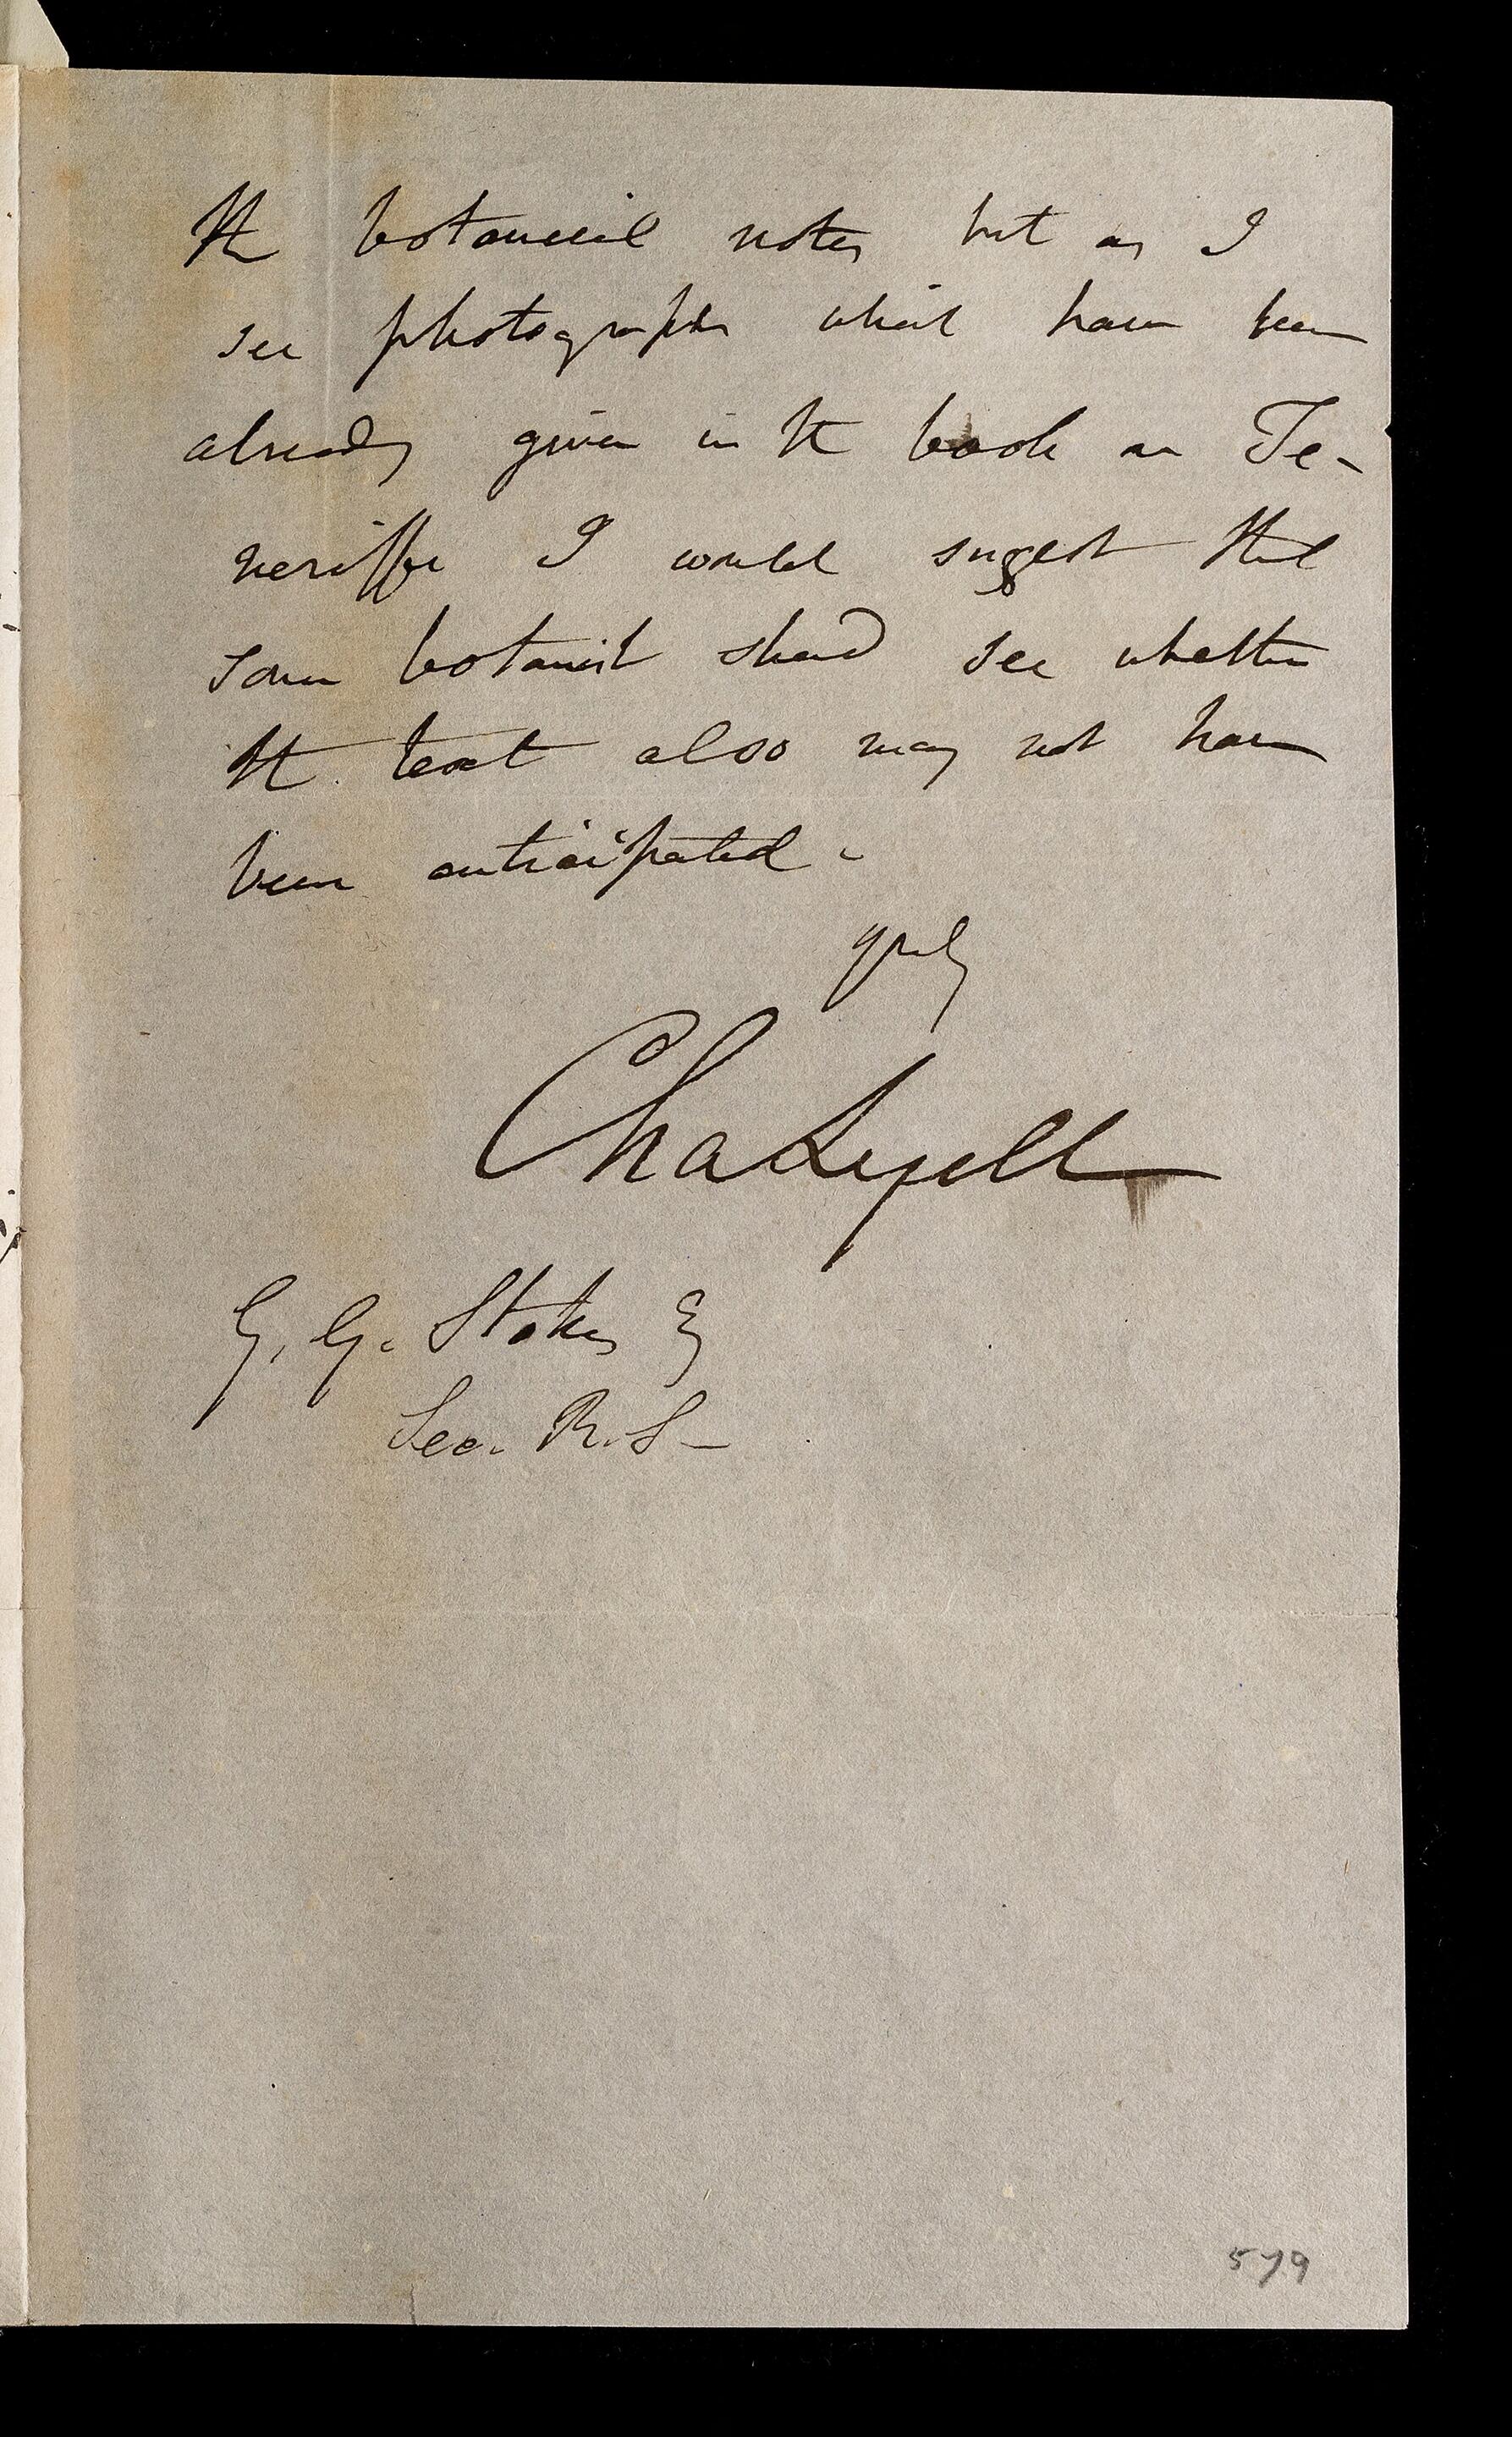 the botanical notes but as I
see photographs which have been
already given in the book on Te-
neriffe I would suggest that
some botanist shd see whether
the text also may not have
been anticipated -
yrs truly
Cha Lyell
G. G. Stokes Esq
Sec. R. S -
579